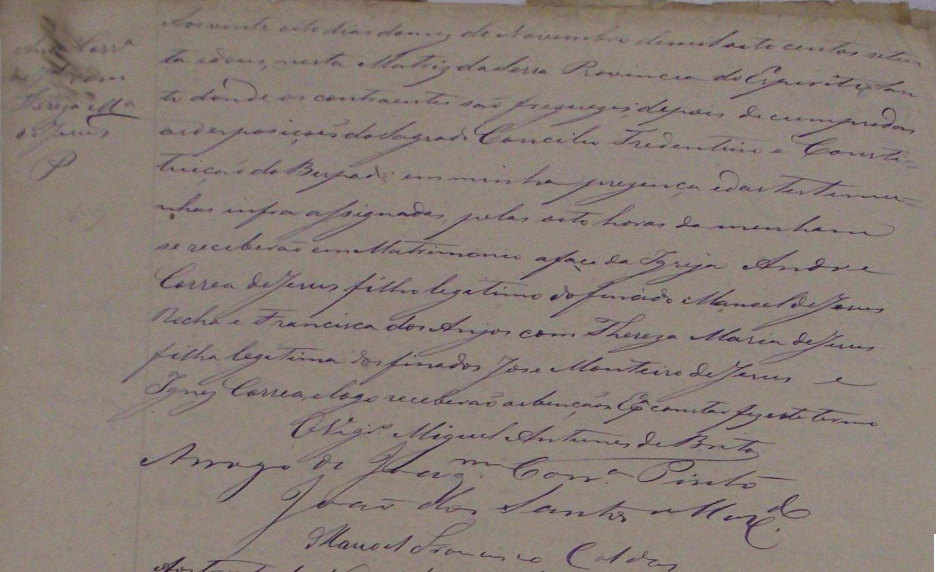 André Corrª
com
Thereza Mª
de Jesus
P
Aos vinte oito dias do mez de Novembro de mil oito centos seten
ta e dous, nesta Matriz da Serra Provencia do Espirito San
to donde os contraentes são freguezes, depois de cumpridas
as desposições do Sagrado Concilio Tredentino e Consti-
tuição do Bispado em minha presença, e das testemu-
nhas infra assignadas, pelas oito horas da menham
se receberão em Matrimonio a façe da Igreja Andre
Correa de Jesus filho legitimo do finado Manoel de Jesus
Rocha e Francisca dos Anjos com Thereza Maria de Jesus
filha legitima dos finados Jose Monteiro de Jesus e
Ignez Correa, e logo receberão as bençãos Eª constar fiz este termo
O Vigrº Miguel Antunes de Brito
Arrogo de Joaqm Corrª Pinto
João dos Santos
Manoel Francisco Caldas